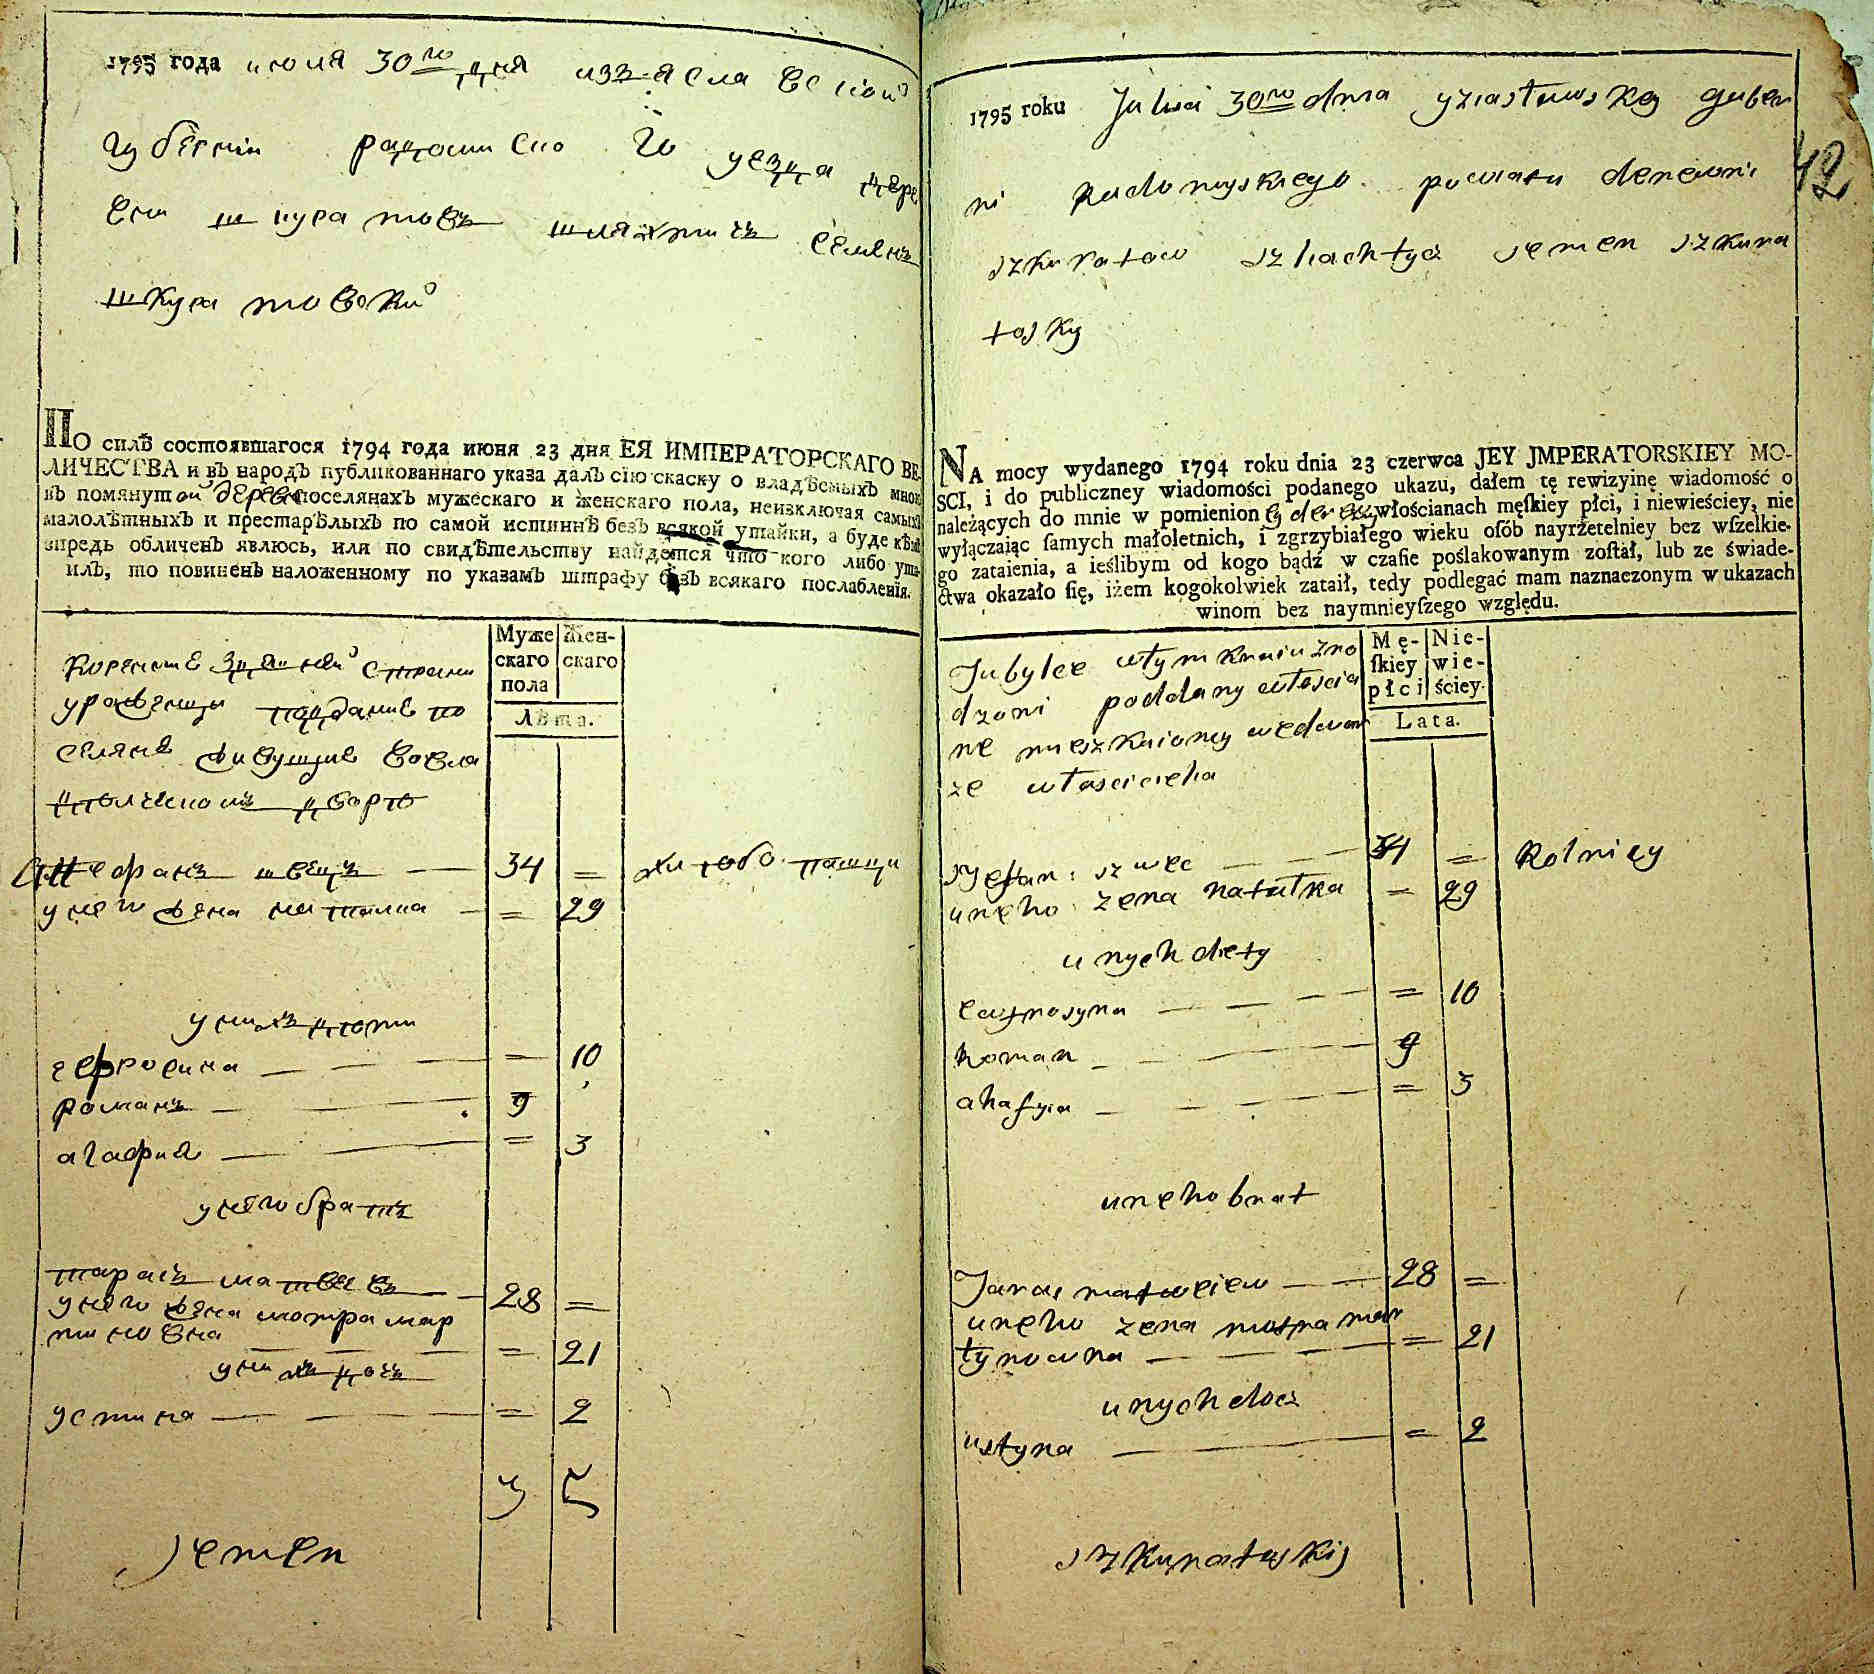 1795 года июля 30го дня изяславской
губернии радомиского уезда дере
вни шкуратовъ шляхтичъ семенъ
шкуратовский
По силѣ состоявшагося 1794 года июня 23 дня ЕЯ ИМПЕРАТОРСКАГО ВЕ-
ЛИЧЕСТВА и въ народъ публикованнаго указа далъ сію скаску о владѣемыхъ мною
въ помянутой деревне поселянахъ мужескаго и женскаго пола, неизключая самыхъ
малолѣтныхъ и престарѣлыхъ по самой истиннѣ безъ всякой утайки, а буде кѣмъ
впредь обличенъ явлюсь, или по свидѣтельству найдется что кого либо ута-
илъ, то повиненъ наложенному по указамъ штрафу безъ всякаго послабленія.
Муже
скаго
пола
Жен-
скаго
Лѣта.
стране
уроженцы подание по
селяне живущие вовла
дворе
Стефанъ швецъ 34 =
у него жена наталка = 29
у нихъ дети
ефросина = 10
романъ 9
агафия = 3
у него братъ
тарасъ матвеевъ 28 =
у него жена мотра мар
тиновна = 21
у нихъ дочъ
устина = 2
3 5
Jemen
42
1795 roku Julia 30go dnia yziasławskey guber
ni Radomyskiego powiatu derewni
szkuratow szlachtycz semen szkura
tosky
NA mocy wydanego 1794 roku dnia 23 czerwca JEY JMPERATORSKIEY MO-
SCI, i do publiczney wiadomości podanego ukazu, dałem tę rewizyinę wiadomość o
należących do mnie w pomienioney derewny włościanach męſkiey płci, i niewieściey, nie
wyłączaiąc ſamych małoletnich, i zgrzybiałego wieku oſób nayrżetelniey bez wſzelkie-
go zataienia, a ieślibym od kogo bądź w czaſie poślakowanym zoſtał, lub ze świade-
ctwa okazało ſię, iżem kogokolwiek zataił, tedy podlegać mam naznaczonym w ukazach
winom bez naymnieyſzego względu.
Mę-
ſkiey
płci
Nie-
wie-
ściey.
Lata.
wtym kraiu zro
dzoni poddany włościa
ne mieszkaioncy wedwor
ze własciciela
styefan szwec 34 = Rolnicy
uneho zena natalka = 29
u nych diety
ewfrosyna = 10
Roman 9
ahafyia = 3
uneho brat
Taras matweiew 28 =
uneho zena motra mar
tynowna = 21
u nych docz
ustyna = 2
szkuratuskiy